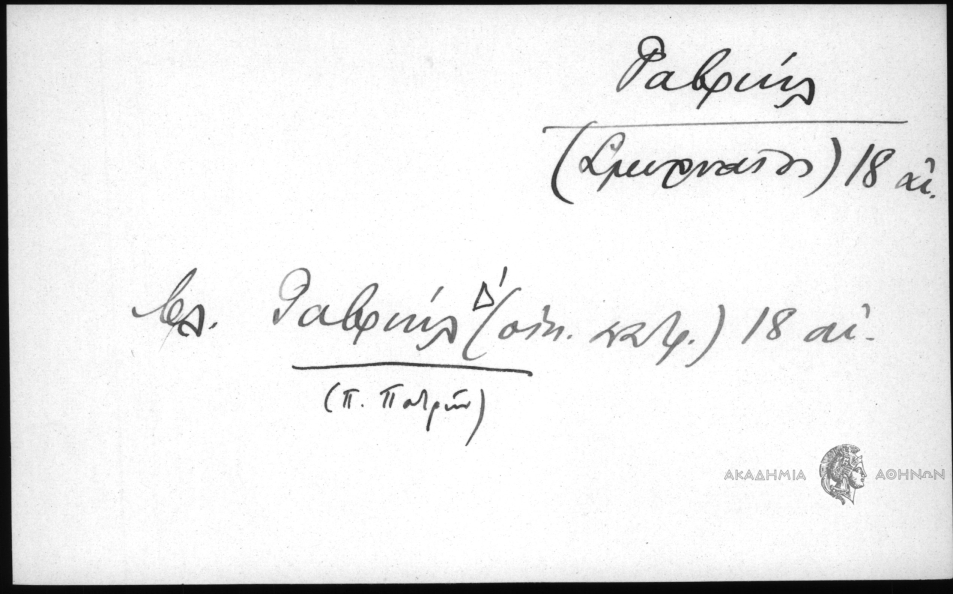 Γαβριήλ
(Σμυρναῖος) 18 αἰ.
βλ. Γαβριήλ Δ' (οἰκ. πατρ.) 18 αἰ.
(Π. Πατρῶν)
ΑΚΑΔΗΜΙΑ ΑΘΗΝΩΝ